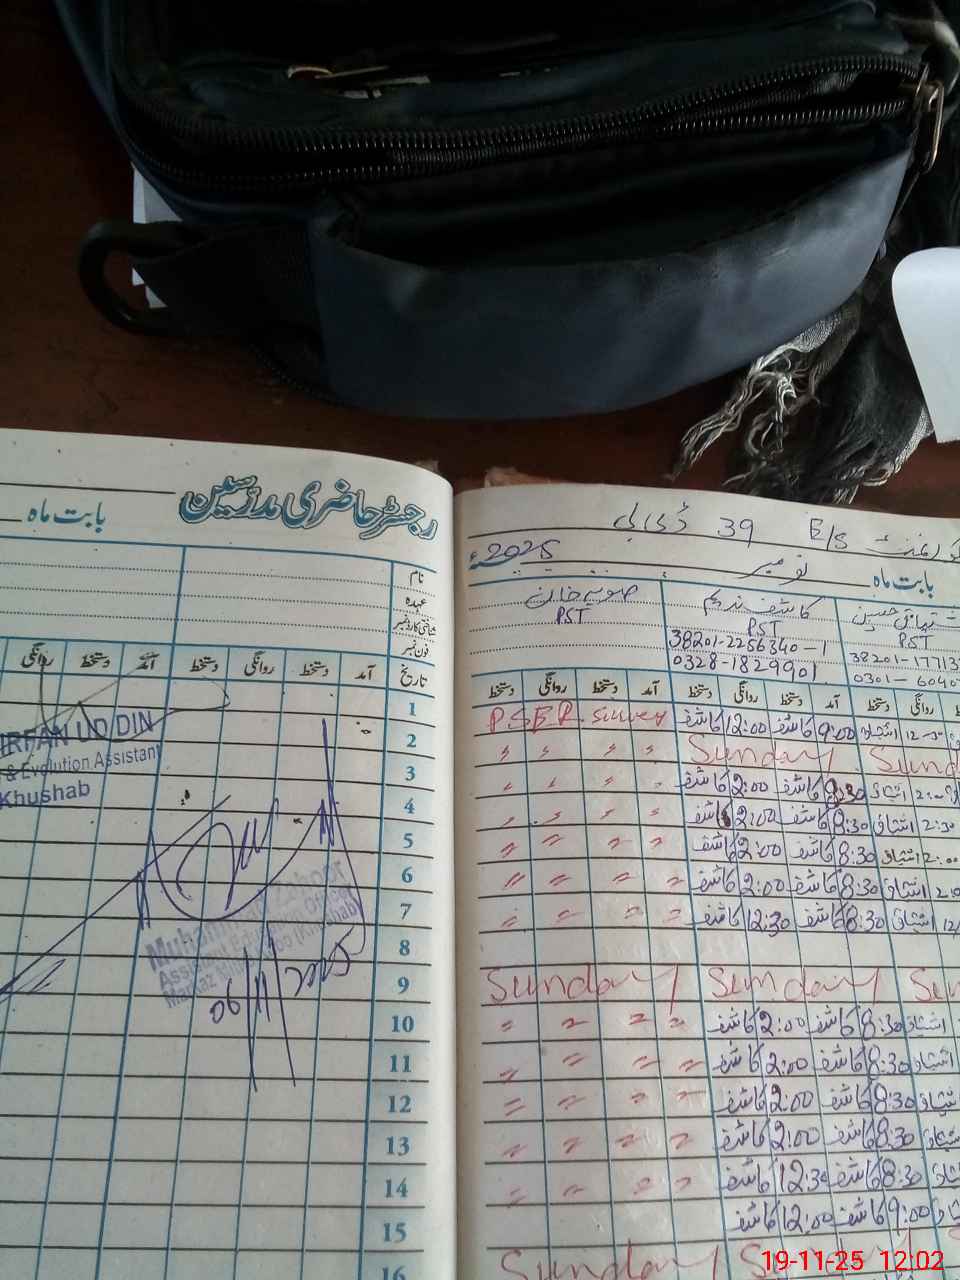 رجسٹر حاضری مدرسین
بابت ماہ
نام
عہدہ
شناختی کارڈ نمبر
فون نمبر
تاریخ آمد دستخط روانگی دستخط آمد دستخط روانگی
1
2
3
4
5
6
7
8
9
10
11
12
13
14
15
16
IRFAN UD DIN
& Evolution Assistant
Khushab
Muhammad Zahoor
Assistant Education Officer
06/11/2025
E/S 39 ڈی بی
بابت ماہ نومبر 2025ء
کاشف ندیم صوبیہ خان
PST PST PST
38201-17713 38201-2256340-1
0301-6040 0328-1829901
دستخط روانگی دستخط آمد دستخط روانگی دستخط آمد دستخط روانگی
اشتیاق 12:30 9:00 کاشف 12:00 کاشف PSER Survey
Sunday Sunday 〃 〃 〃 〃
اشتیاق 2:00 8:30 کاشف 2:00 کاشف 〃 〃 〃 〃
اشتیاق 2:30 8:30 کاشف 2:00 کاشف 〃 〃 〃 〃
اشتیاق 2:00 8:30 کاشف 2:00 کاشف 〃 〃 〃 〃
اشتیاق 8:30 کاشف 2:00 کاشف 〃 〃 〃 〃
اشتیاق 8:30 کاشف 12:30 کاشف 〃 〃 〃 〃
Sunday Sunday
اشتیاق 8:30 کاشف 2:00 کاشف 〃 〃 〃 〃
اشتیاق 8:30 کاشف 2:00 کاشف 〃 〃 〃 〃
اشتیاق 8:30 کاشف 2:00 کاشف 〃 〃 〃 〃
اشتیاق 8:30 کاشف 2:00 کاشف 〃 〃 〃 〃
8:30 کاشف 12:30 کاشف 〃 〃 〃 〃
9:00 کاشف 12:00 کاشف
Sunday Sunday
19-11-25 12:02